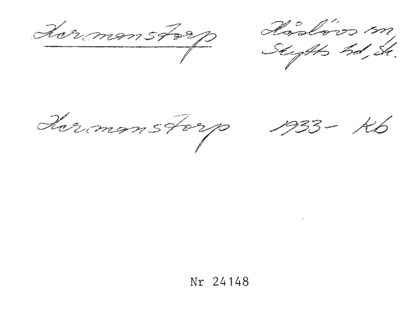 Hermanstorp Håslövs sn,
Skytts hd, Sk.
Hermanstorp 1933- Kb
Nr 24148